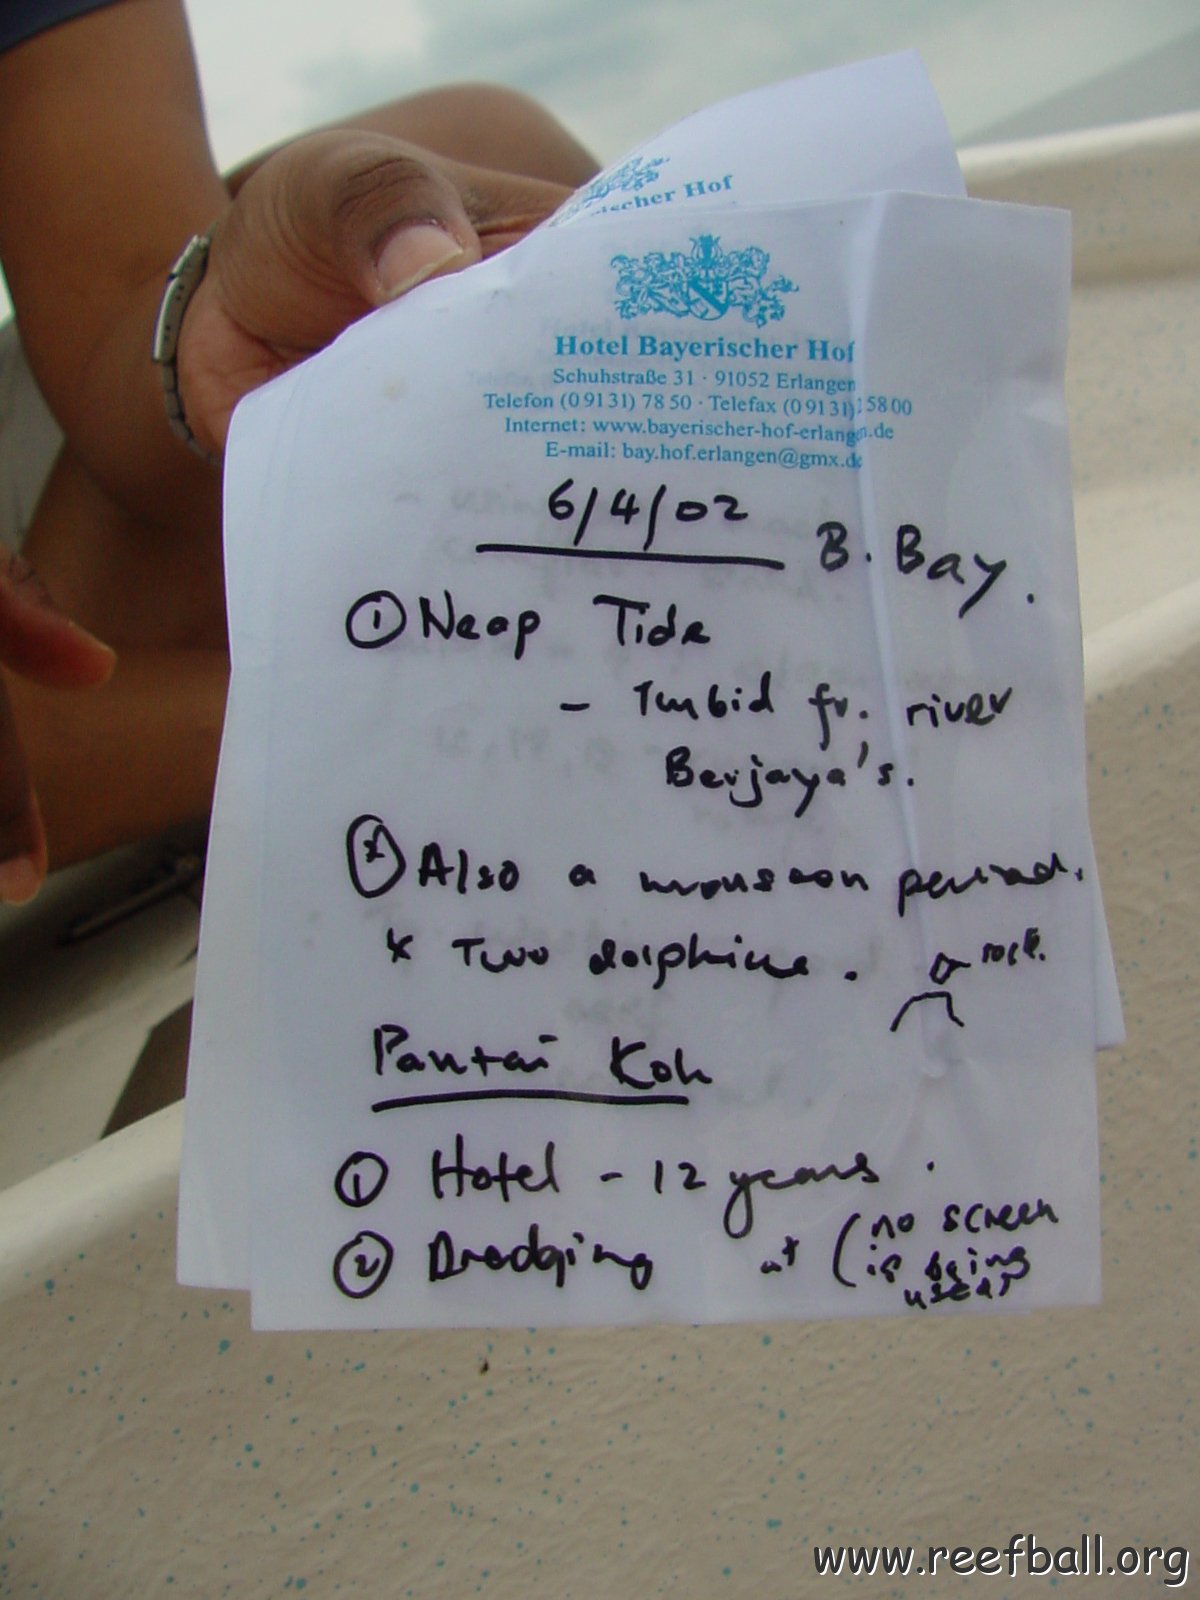 ischer Hof
Hotel Bayerischer Hof
Schuhstraße 31 · 91052 Erlangen
Telefon (0 91 31) 78 50 · Telefax (0 91 31) 2 58 00
Internet: www.bayerischer-hof-erlangen.de
E-mail: bay.hof.erlangen@gmx.de
6/4/02
B. Bay.
① Neap Tide
- Turbid fr. river
Berjaya's.
Also a monsoon period.
x Two dolphins.
rock.
Pantai Koh
① Hotel - 12 years.
② Dredging at (no screen
is being
used)
www.reefball.org